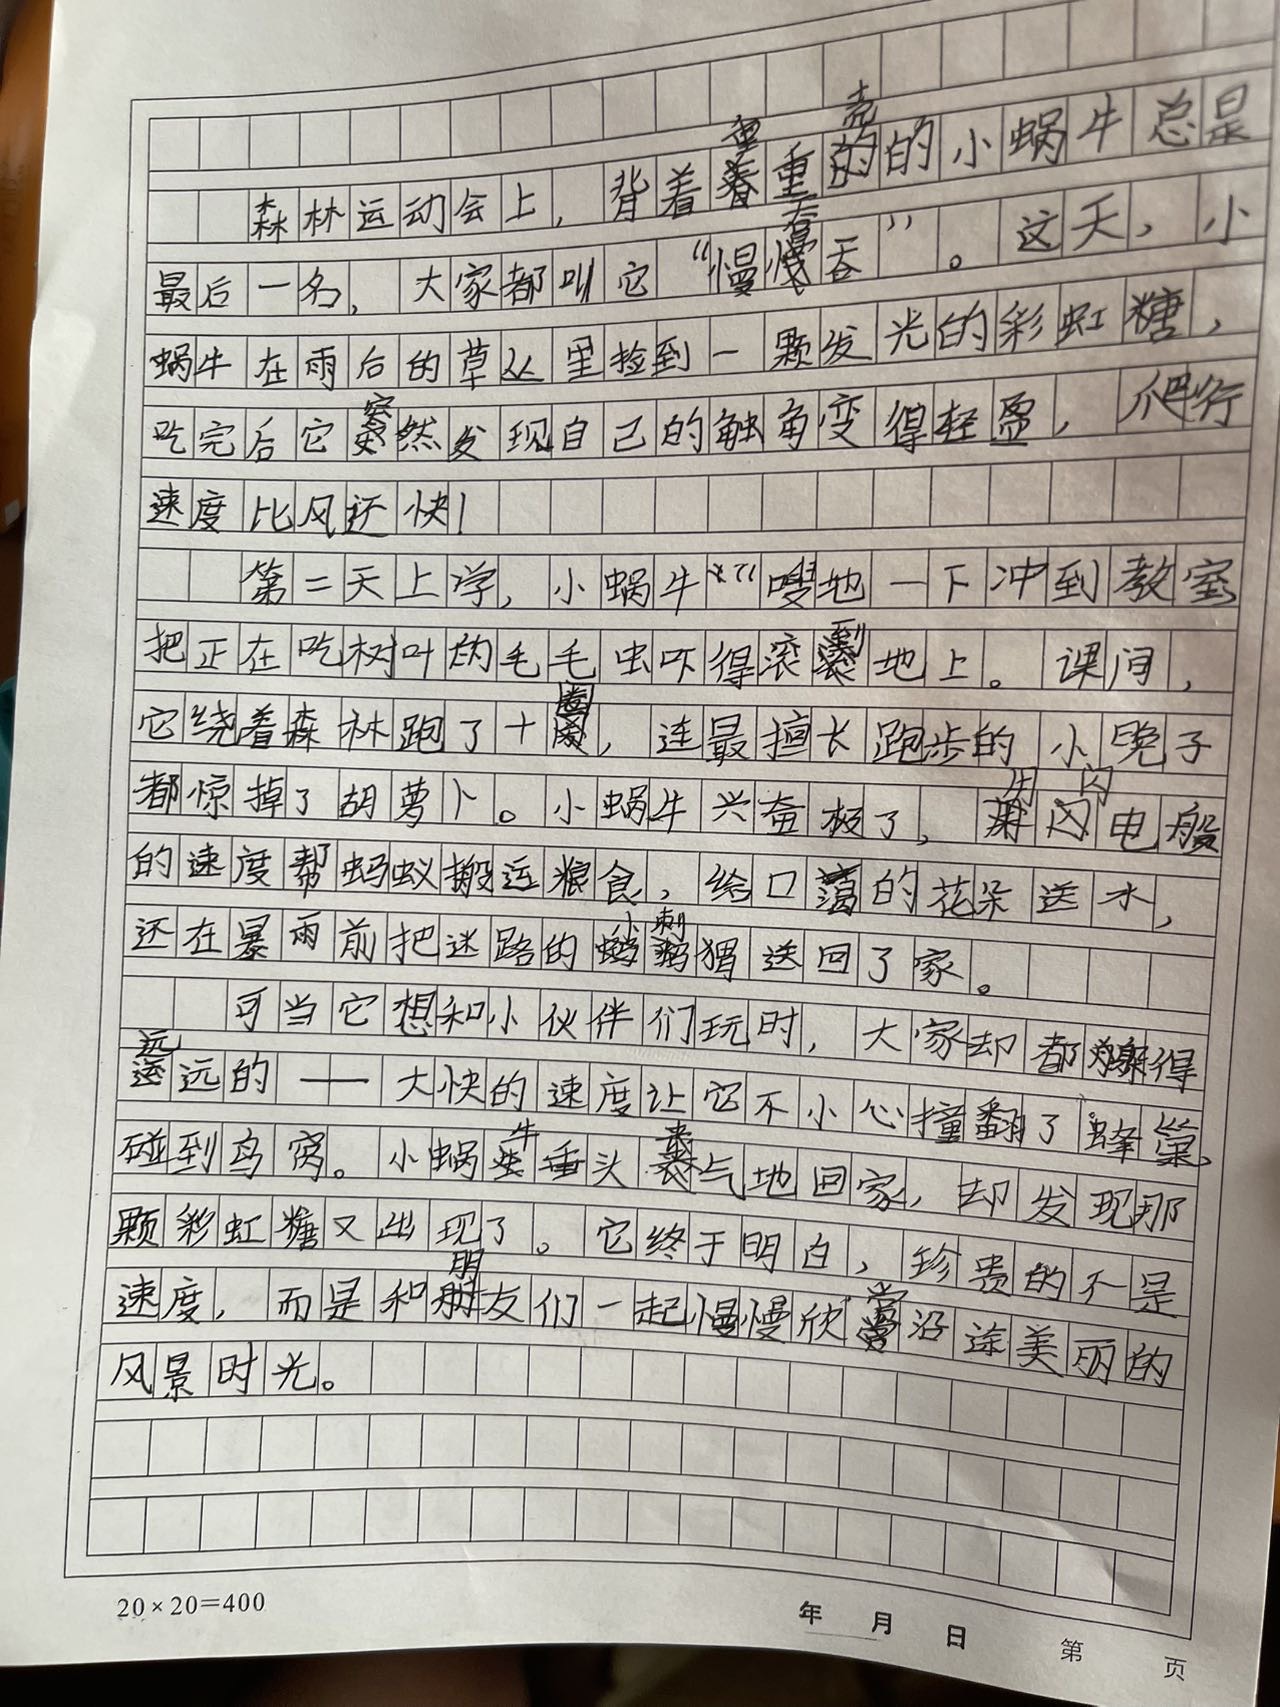 森林运动会上，背着重重的壳的小蜗牛总是
最后一名，大家都叫它“慢吞吞”。这天，小
蜗牛在雨后的草丛里捡到一颗发光的彩虹糖，
吃完后它突然发现自己的触角变得轻盈，爬行
速度比风还快！
第二天上学，小蜗牛“嗖地一下冲到教室，
把正在吃树叶的毛毛虫吓得滚到地上。课间，
它绕着森林跑了十圈，连最擅长跑步的小兔子
都惊掉了胡萝卜。小蜗牛兴奋极了，用闪电般
的速度帮蚂蚁搬运粮食，给口渴的花朵送水，
还在暴雨前把迷路的小刺猬送回了家。
可当它想和小伙伴们玩时，大家却都躲得
远远的——大快的速度让它不小心撞翻了蜂巢，
碰到鸟窝。小蜗牛垂头丧气地回家，却发现那
颗彩虹糖又出现了。它终于明白，珍贵的不是
速度，而是和朋友们一起慢慢欣赏沿途美丽的
风景时光。
20×20=400
年 月 日 第 页